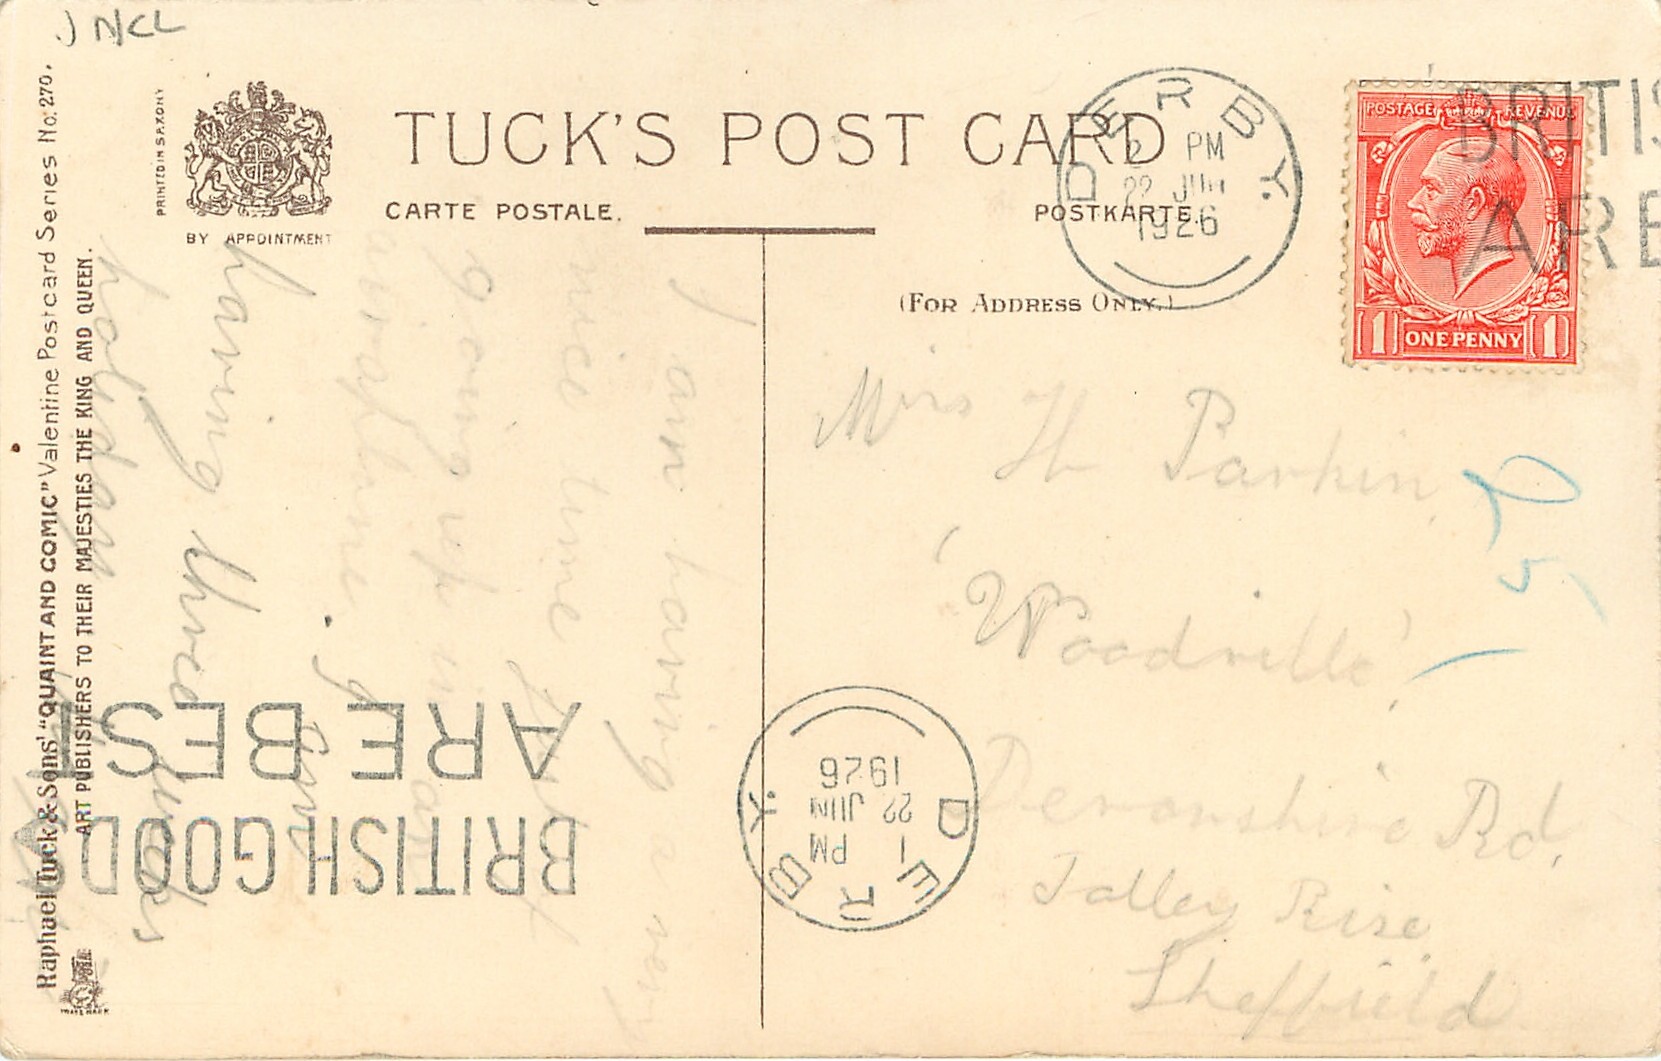 J NCL
PRINTED IN SAXONY
BY APPOINTMENT
TUCK'S POST CARD
CARTE POSTALE.
POSTKARTE.
(FOR ADDRESS ONLY.)
Raphael Tuck & Sons' "QUAINT AND COMIC" Valentine Postcard Series No. 270.
ART PUBLISHERS TO THEIR MAJESTIES THE KING AND QUEEN.
TRADE MARK
DERBY.
PM
22 JUN
1926
BRITIS
ARE
POSTAGE REVENUE
1 ONE PENNY 1
I am having a very
nice time
going up in an
aeroplane. I am
having three weeks
holidays
Mrs H Parkin
'Woodville',
Devonshire Rd,
Totley Rise
Sheffield
DERBY.
1 PM
22 JUN
1926
BRITISH GOODS
ARE BEST